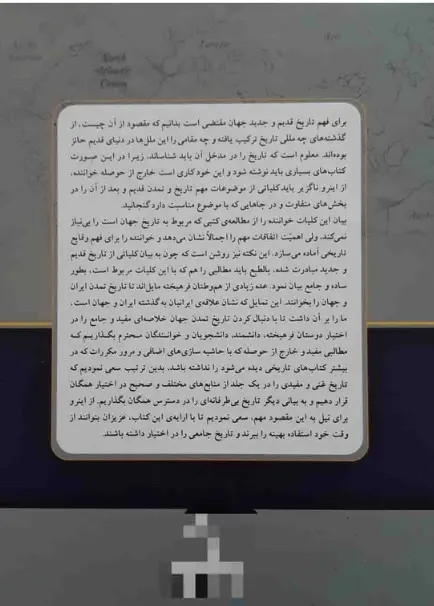 برای فهم تاریخ قدیم و جدید جهان مقتضی است بدانیم که مقصود از آن چیست، از
گذشته‌های چه مللی تاریخ ترکیب یافته و چه مقامی را این ملل‌ها در دنیای قدیم حائز
بوده‌اند. معلوم است که تاریخ را در مدخل آن باید شناساند، زیرا در این صورت
کتاب‌های بسیاری باید نوشته شود و این خود کاری است خارج از حوصله خواننده،
از اینرو ناگزیر باید کلیاتی از موضوعات مهم تاریخ و تمدن قدیم و بعد از آن را در
بخش‌های متفاوت و در جاهایی که با موضوع مناسبت دارد گنجانید.
بیان این کلیات خواننده را از مطالعه‌ی کتبی که مربوط به تاریخ جهان است را بی‌نیاز
نمی‌کند، ولی اهمیّت اتفاقات مهم را اجمالاً نشان می‌دهد و خواننده را برای فهم وقایع
تاریخی آماده می‌سازد. این نکته نیز روشن است که چون به بیان کلیاتی از تاریخ قدیم
و جدید مبادرت شده، بالطبع باید مطالبی را هم که با این کلیات مربوط است، بطور
ساده و جامع بیان نمود. عده زیادی از هم‌وطنان فرهیخته مایل‌اند تا تاریخ تمدن ایران
و جهان را بخوانند. این تمایل که نشان علاقه‌ی ایرانیان به گذشته ایران و جهان است،
ما را بر آن داشت تا با دنبال کردن تاریخ تمدن جهان خلاصه‌ای مفید و جامع را در
اختیار دوستان فرهیخته، دانشمند، دانشجویان و خوانندگان محترم بگذاریم که
مطالبی مفید و خارج از حوصله که با حاشیه سازی‌های اضافی و مرور مکررات که در
بیشتر کتاب‌های تاریخی دیده می‌شود را نداشته باشد. بدین ترتیب سعی نمودیم که
تاریخ غنی و مفیدی را در یک جلد از منابع‌های مختلف و صحیح در اختیار همگان
قرار دهیم و به بیانی دیگر تاریخ بی‌طرفانه‌ای را در دسترس همگان بگذاریم. از اینرو
برای نیل به این مقصود مهم، سعی نمودیم تا با ارایه‌ی این کتاب، عزیزان بتوانند از
وقت خود استفاده بهینه را ببرند و تاریخ جامعی را در اختیار داشته باشند.